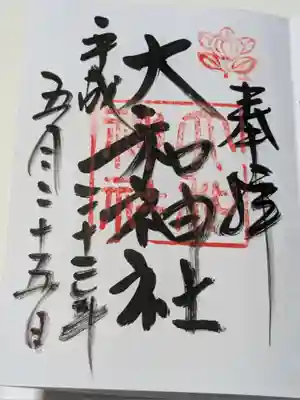 奉拝
大和神社
平成二十三年
五月二十五日